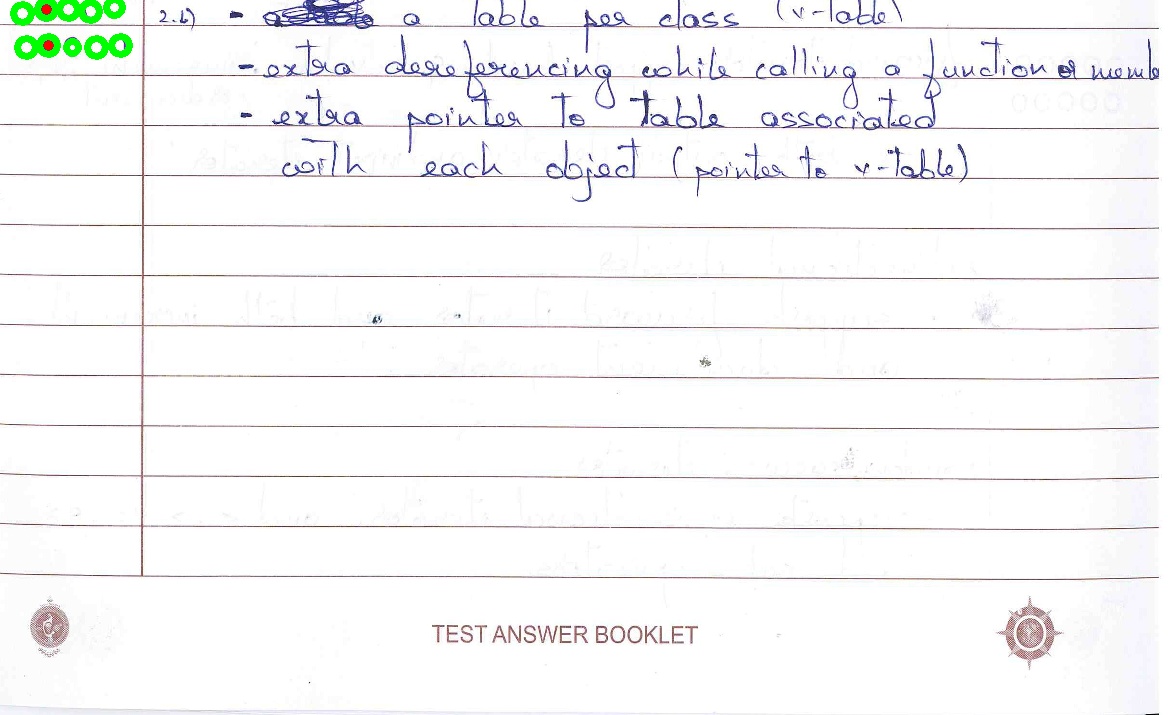 2.b) - a table per class (v-table)
- extra dereferencing while calling a function or memb
- extra pointer to table associated
with each object (pointer to v-table)
TEST ANSWER BOOKLET